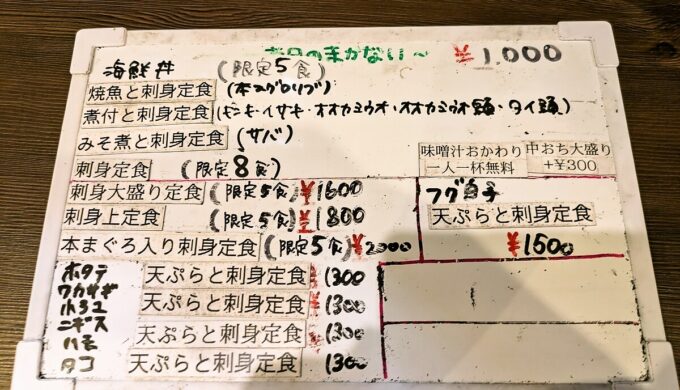 本日のまかない〜 ¥1,000
海鮮丼 (限定5食)
焼魚と刺身定食 (本マグロリブ)
煮付と刺身定食 (キンキ・イサキ・オオカミウオ・オオカミウオ頭・タイ頭)
みそ煮と刺身定食 (サバ)
刺身定食 (限定8食)
味噌汁おかわり
一人一杯無料
中おち大盛り
+¥300
刺身大盛り定食 (限定5食) ¥1600
刺身上定食 (限定5食) ¥1800
本まぐろ入り刺身定食 (限定5食) ¥2000
フグ白子
天ぷらと刺身定食
¥1500
ホタテ 天ぷらと刺身定食 1300
ワカサギ
天ぷらと刺身定食 ¥1300
ニギス 天ぷらと刺身定食 1300
ハモ
タコ 天ぷらと刺身定食 1300